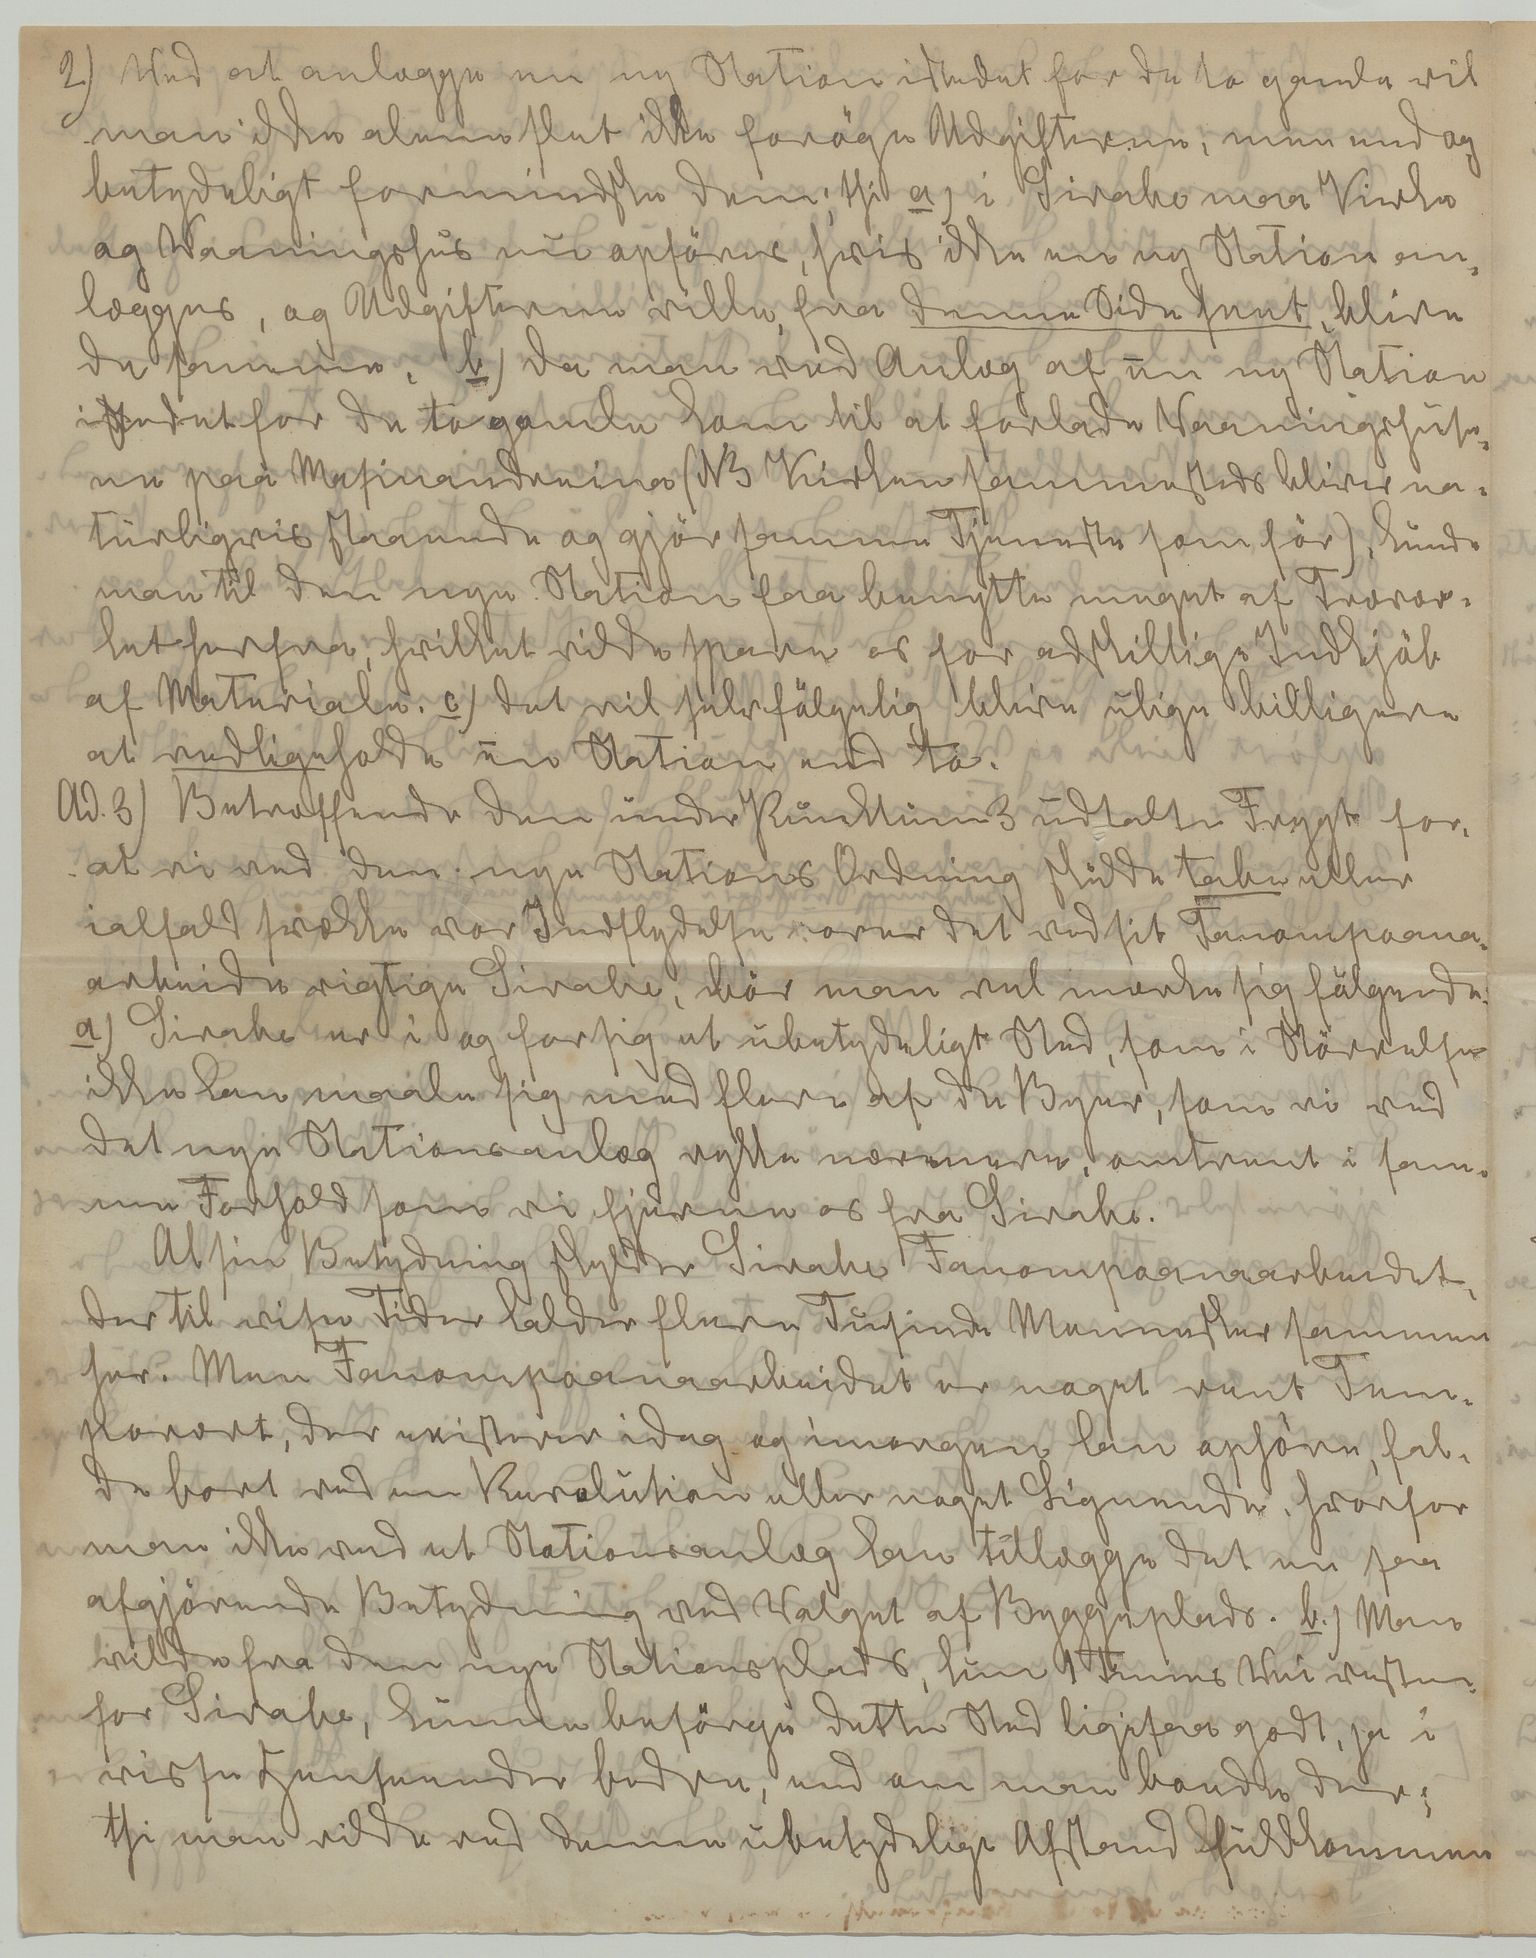 2) Ved at anlægge en ny Station istedet for de to gamle vil
man ikke alene slet ikke forøge Udgifterne, men endog
betydeligt formindske dem; thi a) i Sirabe maa Kirke
og Vaaningshus nu opføres, hvis ikke en ny Station an-
lægges, og Udgifterne ville, fra denne Side seet, blive
de samme. b) Da man ved Anlæg af en ny Station
istedet for de to gamle kom til at forlade Vaaningshuse-
ne paa Masinandreina (NB Kirken sammesteds bliver na-
turligvis staaende og gjør samme Tjeneste som før), kunde
man til den nye Station faa benyttet meget af Trævær-
ket herfra, hvilket vilde spare os for adskillige Indkjøb
af Materiale. c) det vil selvfølgelig blive ulige billigere
at vedligeholde en Station end to.
Ad. 3) Betræffende den under Punktum 3 udtalte Frygt for,
at vi ved den nye Stations Ordning skulde tabe eller
ialfald svække vor Indflydelse over det ved sit Fanompoana-
arbeide vigtige Sirabe, bør man vel mærke sig følgende:
a) Sirabe er i og for sig et ubetydeligt Sted, som i Størrelse
ikke kan maale sig med flere af de Byer, som vi ved
det nye Stationsanlæg rykke nærmere, omtrent i sam-
me Forhold som vi fjerne os fra Sirabe.
Al sin Betydning skylder Sirabe Fanompoanaarbeidet,
der til visse Tider kalder flere Tusinde Mennesker sammen
her. Men Fanompoanaarbeidet er noget rent Tem-
porært, der existerer idag og imorgen kan ophøre, fal-
de bort ved en Revolution eller noget Lignende, hvorfor
man ikke ved et Stationsanlæg kan tillægge det en saa
afgjørende Betydning ved Valget af Byggeplads. b.) Man
vilde fra den nye Stationsplads, kun 1 Times Vei vesten-
for Sirabe, kunne besørge dette Sted ligesaa godt, ja i
visse Henseender bedre, end om man boede der;
thi man vilde ved denne ubetydelige Afstand fuldkommen